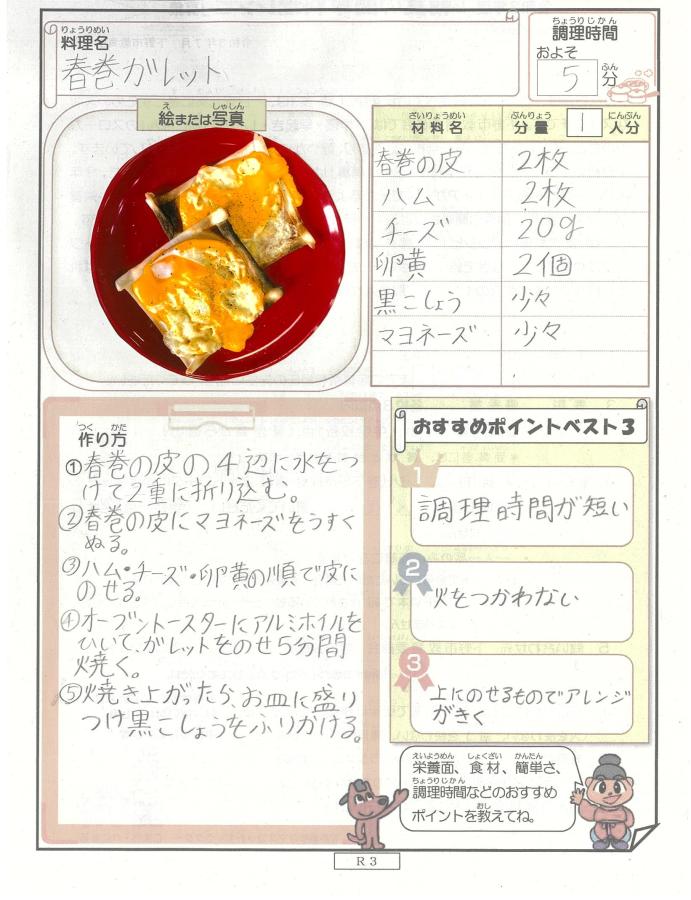 りょうりめい
料理名
春巻ガレット
ちょうりじかん
調理時間
およそ
5分
ぷん
え しゃしん
絵または写真
ざいりょうめい ぶんりょう にんぶん
材料名 分量 1 人分
春巻の皮 2枚
ハム 2枚
チーズ 20g
卵黄 2個
黒こしょう 少々
マヨネーズ 少々
つく かた
作り方
①春巻の皮の4辺に水をつ
けて2重に折り込む。
②春巻の皮にマヨネーズをうすく
ぬる。
③ハム・チーズ・卵黄の順で皮に
のせる。
④オーブントースターにアルミホイルを
ひいて、ガレットをのせ5分間
焼く。
⑤焼き上がったら、お皿に盛り
つけ黒こしょうをふりかける。
おすすめポイントベスト3
1
調理時間が短い
2
火をつかわない
3
上にのせるものでアレンジ
がきく
えいようめん しょくざい かんたん
栄養面、食材、簡単さ、
ちょうりじかん
調理時間などのおすすめ
おし
ポイントを教えてね。
R3